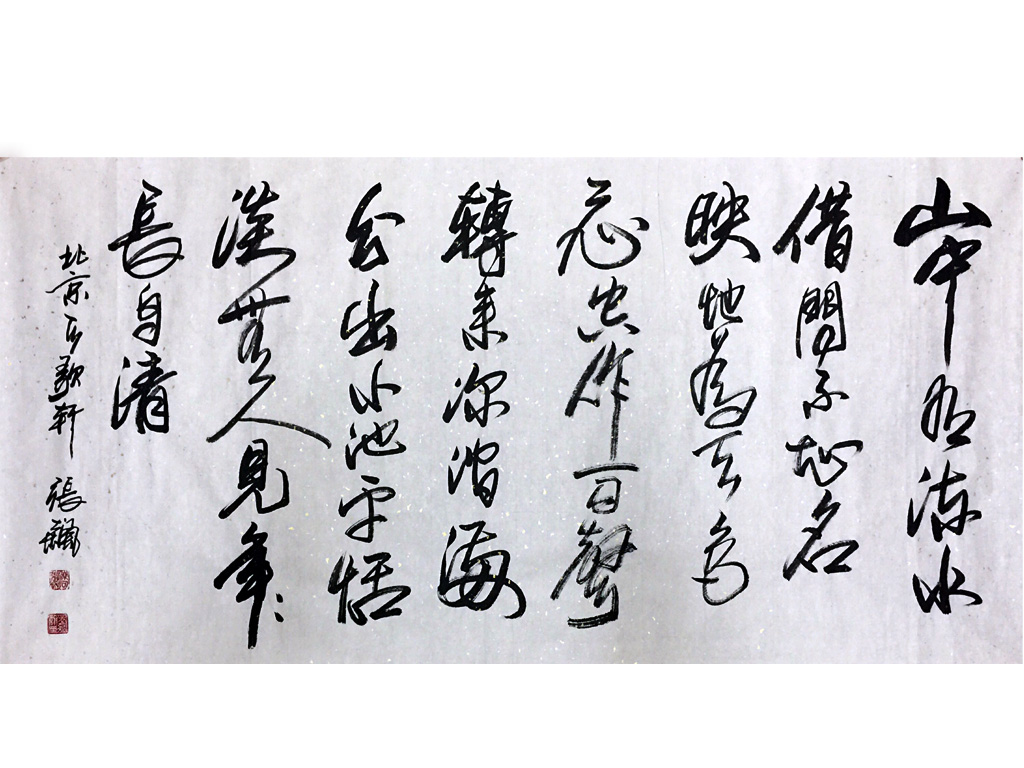 山中有流水
借問不知名
映地為天色
飛空作雨聲
轉來深澗滿
分出小池平恬
淡無人見年々
長自清
北京歌軒 張